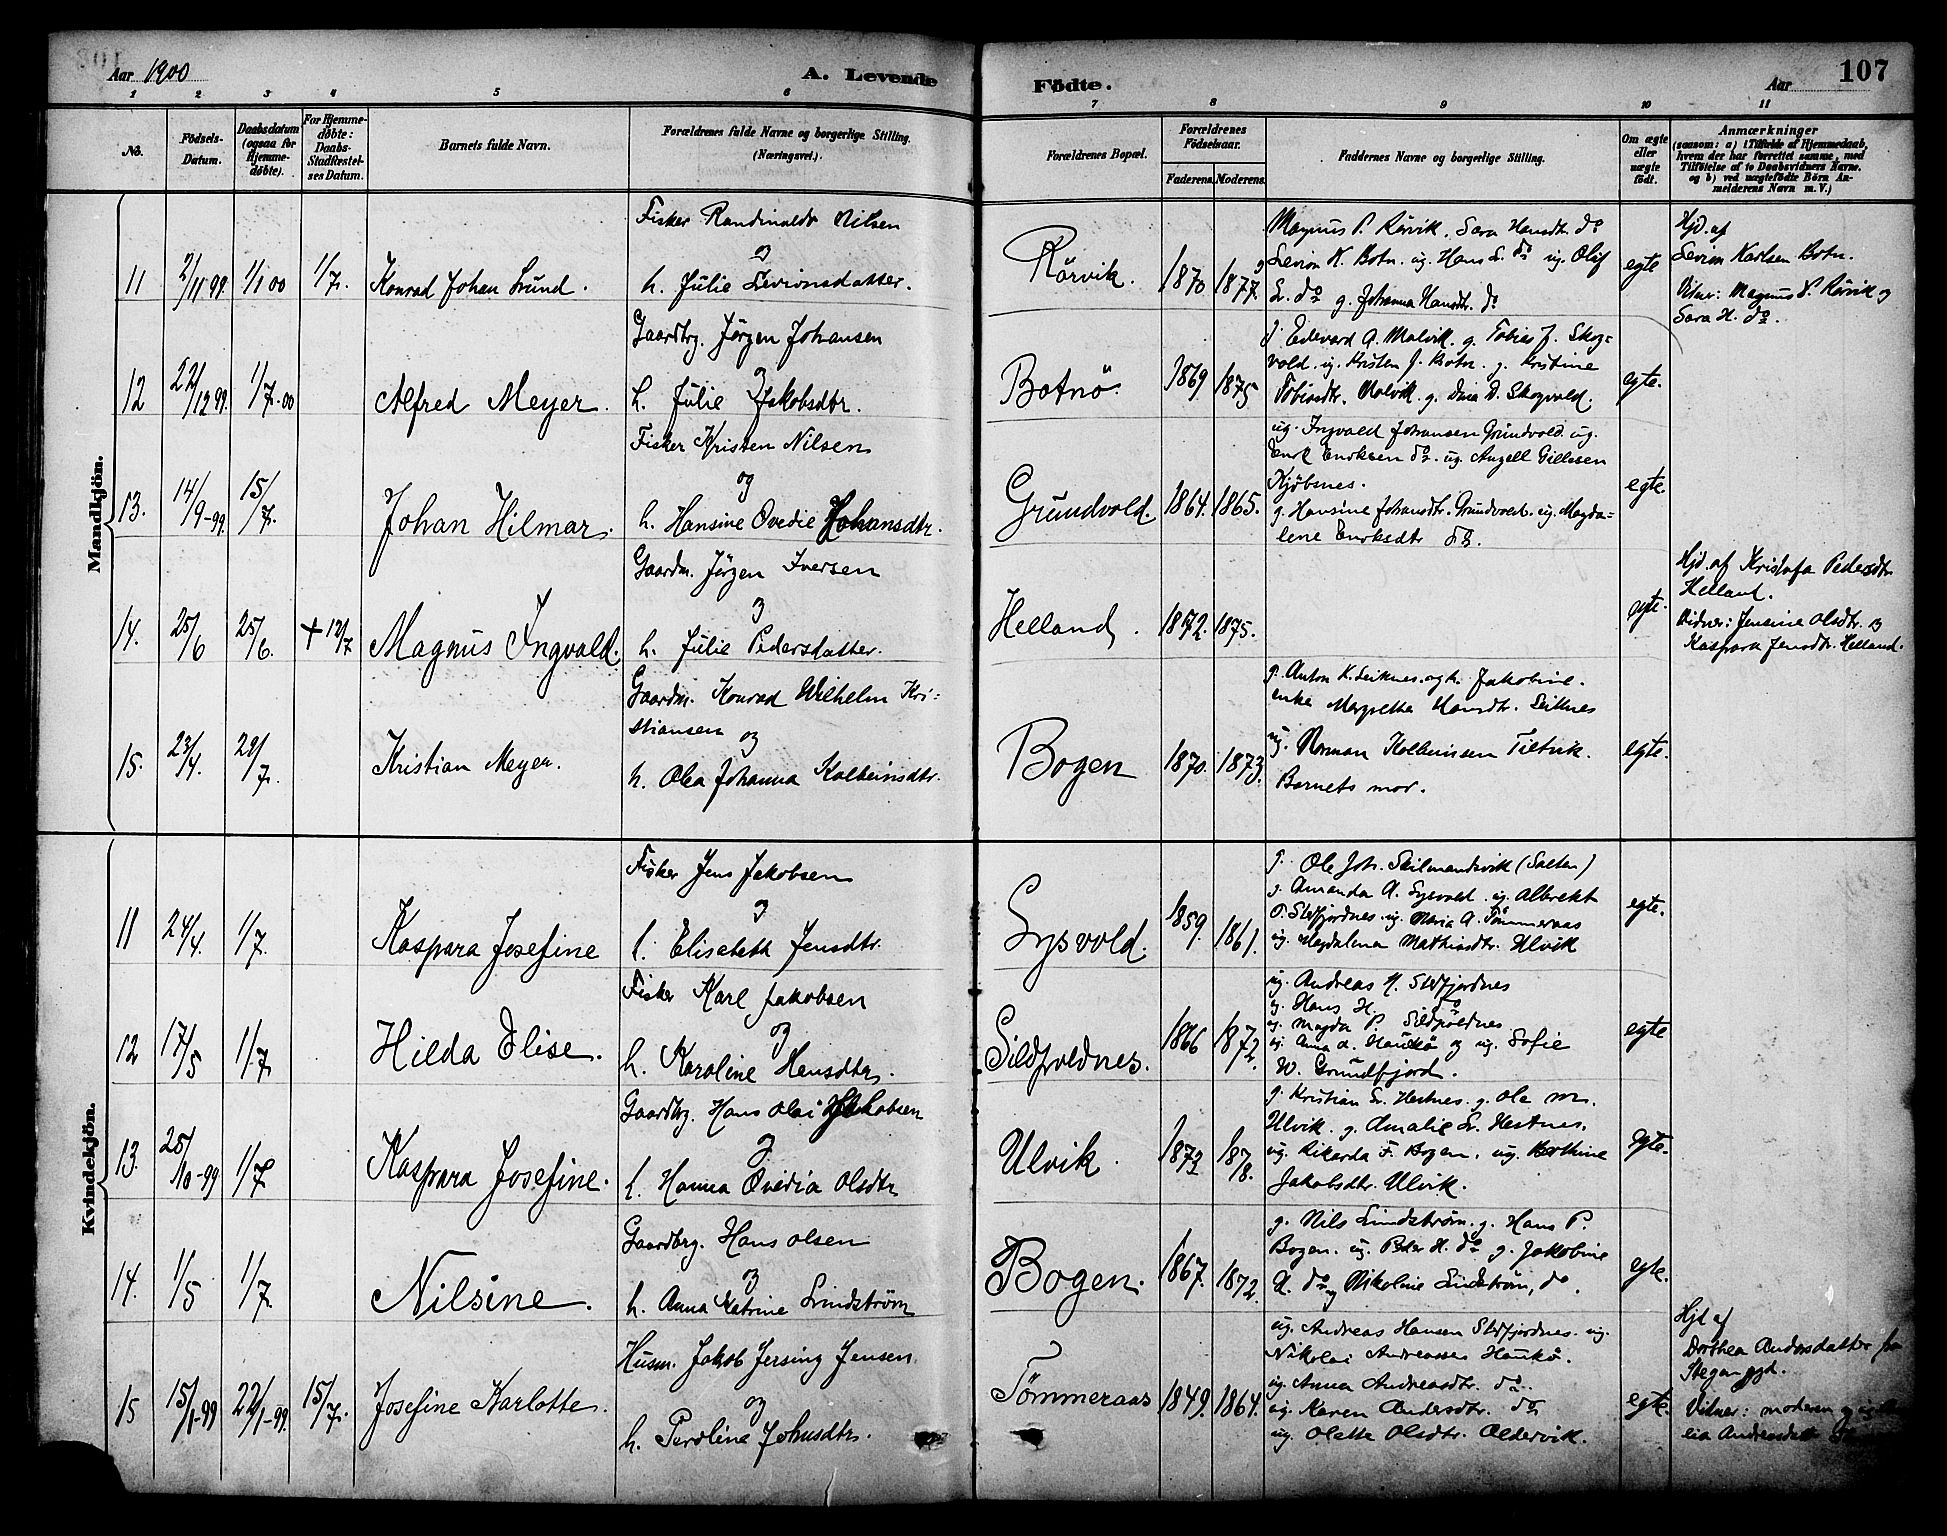 Aar 1900
A. Levende
Fødte.
Aar
107
1 2 3 4 5 6 7 8 9 10 11
No.
Fødsels-
Datum.
Daabsdatum
(ogsaa for
Hjemme-
døbte).
For Hjemme-
døbte:
Daabs-
Stadfæstel-
ses Datum.
Barnets fulde Navn.
Forældrenes fulde Navne og borgerlige Stilling.
(Næringsvei).
Forældrenes Bopæl.
Forældrenes
Fødselsaar.
Faderens.
Moderens.
Faddernes Navne og borgerlige Stilling.
Om ægte
eller
uægte
født.
Anmærkninger
(saasom: a) i Tilfælde af Hjemmedaab,
hvem der har forrettet samme, med
Tilføielse af to Daabsvidners Navne.
og b) ved uægtefødte Børn An-
melderens Navn m. V.)
Mandkjön.
11
2/11 99.
1/1 00
1/7.
Konrad Johan Lund.
Fisker Randinaldt Nilsen
og
h. Julie Levionsdatter.
Rörvik.
1870
1877.
Magnus P. Rörvik. Sara Hansdtr. do
Levion K. Botn. ug. Hans L. do ug. Olif
L. do g. Johanna Hansdtr. do
egte
Hjd. af
Levion Karlsen Botn.
Vitner: Magnus P. Rörvik og
Sara H. do.
12
22/12 99.
1/7.00
Alfred Meyer.
Gaardbrg. Jörgen Johansen
og
h. Julie Jakobsdtr.
Botnö.
1869
1875
g. Edevard A. Malvik. g. Tobias J. Skog=
vold. ug. Kristen J. Botn. g. Kristine
Tobiasdtr. Malvik. g. Dina D. Skogvold.
egte.
13.
14/9-99
15/7.
Johan Hilmar.
Fisker Kristen Nilsen
og
h. Hansine Ovedie Johansdtr.
Grundvold.
1864.
1865.
ug. Ingvald Johansen Grundvold. ug.
Enok Enoksen do. ug. Angell Gillesen
Kjöbsnes.
g. Hansine Johansdtr. Grundvold. ug. Magda=
lene Enoksdtr do.
egte.
14.
25/6
25/6.
+ 12/7
Magnus Ingvald.
Gaardm. Jörgen Iversen
og
h. Julie Pedersdatter.
Helland.
1872.
1875.
egte.
Hjd. af Kristofa Pedersdtr
Helland.
Vidner: Jensine Olsdtr. og
Kaspara Jensdtr. Helland.
15.
23/4.
29/7.
Kristian Meyer.
Gaardm. Konrad Wilhelm Kri=
stiansen
og
h. Olea Johanna Kolbeinsdtr.
Bogen
1870.
1873.
g. Anton K. Leiknes. og h. Jakobine.
enke Margrethe Hansdtr. Leiknes
ug. Norman Kolbeinsen Tiltvik.
Barnets mor.
egte.
Kvindekjön.
11
24/4.
1/7.
Kaspara Josefine
Fisker Jens Jakobsen
og
h. Elisabeth Jensdtr.
Lysvold.
1859.
1861.
g. Ole Joh. Skilmandsvik (Salten)
g. Amanda A. Lysvold. ug. Albrekt
P. Slöfjordnes. ug. Maria A. Tömmeraas
ug. Magdalena Mathiasdtr. Ulvik
egte.
12
17/5
1/7
Hilda Elise.
Fisker Karl Jakobsen
og
h. Karoline Hansdtr.
Sildpoldnes.
1866
1872.
ug. Andreas H. Slöfjordnes
ug. Hans H. do
ug. Magda P. Sildpoldnes
ug. Anna A. Haukö og ug. Sofie
W. Grundfjord.
egte
13.
25/10-99
1/7
Kaspara Josefine.
Gaardbrg. Hans Olai Jakobsen
og
h. Hanna Ovedia Olsdtr
Ulvik.
1873
1878.
g. Kristian L. Hestnes. g. Ole M.
Ulvik. g. Amalie L. Hestnes.
ug. Rikarda F. Bogen. ug. Berthine
Jakobsdtr. Ulvik.
egte.
14.
1/5
1/7.
Nilsine.
Gaardbrg. Hans Olsen
og
h. Anna Katrine Lindström
Bogen.
1867.
1872.
g. Nils Lindström. g. Hans P.
Bogen. ug. Peder H. do g. Jakobine
A. do og Nikoline Lindström, do.
egte.
15
15/1-99
22/1-99.
15/7.
Josefine Karlotte.
Husm. Jakob Jersing Jensen.
og
h. Paroline Johnsdtr.
Tömmeraas
1849.
1864.
ug. Andreas Hansen Slöfjordnes. ug.
Nikolai Andreassen Haukö.
ug. Anna Andreasdtr. do.
ug. Karen Andersdtr. do
ug. Olette Olsdtr. Oldervik.
egte.
Hjd af
Dorthea Andersdatter fra
Stegen pgd.
Vitner: moderen og
Andreasdatt